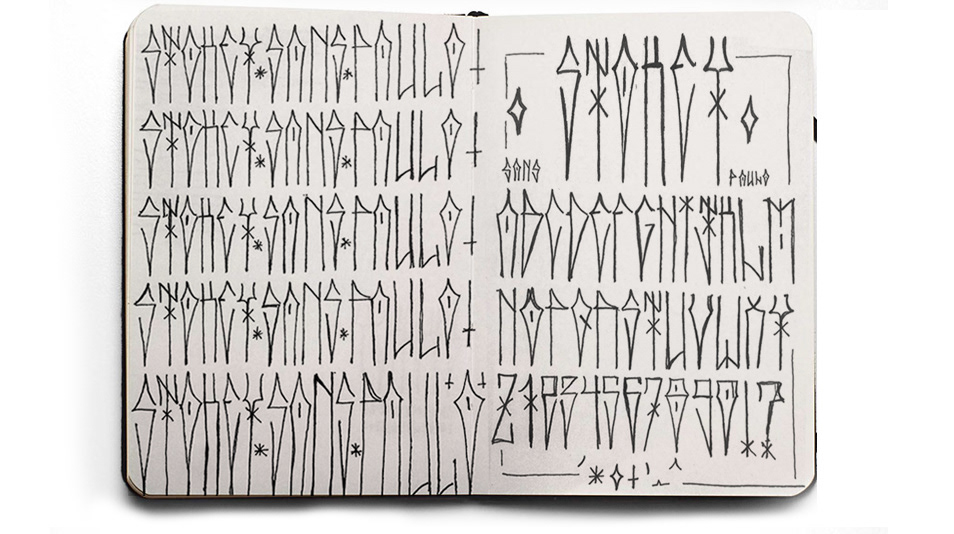 STOKEY*SANS*PAULO
STOKEY*SANS*PAULO
STOKEY*SANS*PAULO
STOKEY*SANS*PAULO
STOKEY*SANS*PAULO
STOKEY
SANS PAULO
ABCDEFGHIJKLM
NOPQRSTUVWXY
Z1234567890!?